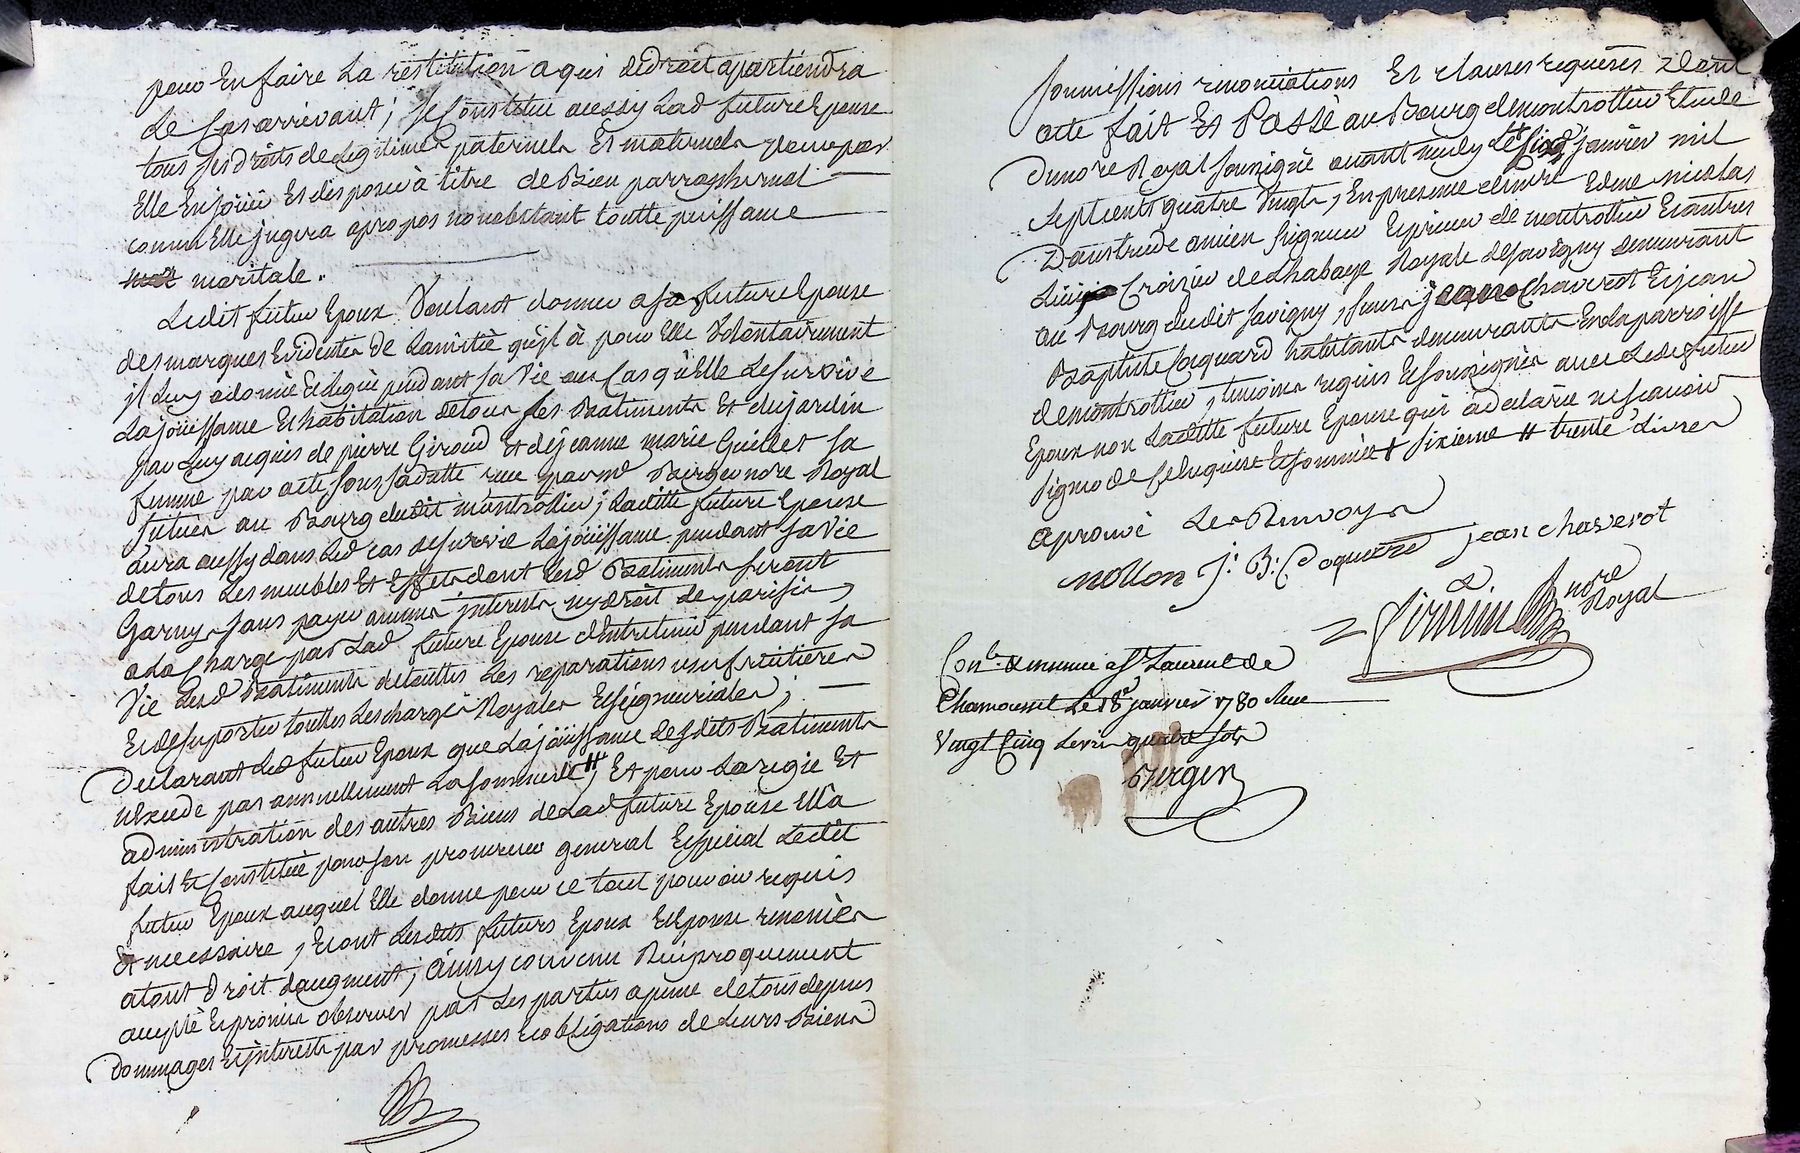 pour En faire La restitution a qui dedroit apartiendra
Le Cas arrivant ; Se Constitue aussy Lad future Epouse
tous ses droits de Legitimes paternels Et maternels pour par
Elle En jouir Et disposer à titre de Bien parraphernal
comm Elle jugera apropos nonobstant toutte puissance
maritale.
Ledit futur Epoux Voulant donner a sa future Epouse
des marques Evidentes De Lamitié qu'il à pour Elle Volontairement
jl Luy a donné Et Legué pendant sa Vie au Cas qu'Elle Le survive
La joüissance Et habitation de tous ses Batiments Et du jardin
par Luy acquis de pierre Giroud Et de jeanne marie Guillet sa
femme par acte sous sa datte reçu par me Berger nore Royal
situés au Bourg dudit montrottier ; Laditte future Epouse
aura aussy dans Led cas de survie La joüissance pendant sa Vie
de tous Les meubles Et Effets dont Lesd Batiments seront
Garnys sans payer aucuns jnterests ny droit de parisis,
a La Charge par Lad future Epouse d'Entretenir pendant sa
Vie Lesd Batiments de touttes Les reparations usufruitieres
Et de suporter touttes Les charges Royales Et seigneuriales ;
Declarant Led futur Epoux que La joüissance desdits Batiments
n'Excede pas annuellement La somme de # ; Et pour La regie Et
administration des autres Biens de Lad future Epouse Ella
fait Et Constitué pour son procureur general Especial Ledit
futur Epoux auquel Elle donne pour ce tout pouvoir requis
Et necessaire, Et ont Lesdits futurs Epoux Et Epouse renoncés
a tout Droit daugment ; ainsy convenu Reciproquement
accepté Et promis observer par Les parties a peine de tous depens
Dommages Et jnterests par promesses Et obligations de Leurs Biens
soumissions renonciations Et clauses requeses Dont
acte fait Et Passé au Bourg de montrottier Etude
Du nore Royal soussigné avant midy Le Cinq janvier mil
Sept cents quatre Vingts, En presence de mre Edme nicolas
Daustrude ancien seigneur Et prieur de montrottier Et autres
Lieux Croizier de Lhabaye Royale de savigny demeurant
au Bourg dudit savigny, sieurs jean Chaverot Et jean
Baptiste Coquard habitants demeurants En La parroisse
de montrottier, temoins requis Et soussignés avec Ledit futur
Epoux non Laditte future Epouse qui a declaré ne scavoir
signer de ce Enquise Et sommée + sixieme # trente Livres
aprouvé Les Renvoys
nollon J: B: Coquard jean chaverot
Firmin nore Royal
Conlé & insinué a St Laurent de
Chamousset Le 18e janvier 1780 Reçu
Vingt Cinq Livres quatre sols
Berger